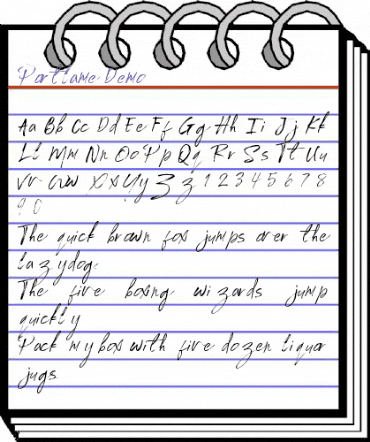 Partlame-Demo
Aa Bb Cc Dd Ee Ff Gg Hh Ii Jj Kk
Ll Mm Nn Oo Pp Qq Rr Ss Tt Uu
Vv Ww Xx Yy Zz 1 2 3 4 5 6 7 8
9 0
The quick brown fox jumps over the
lazydog.
The five boxing wizards jump
quickly
Pack my box with five dozen liquor
jugs